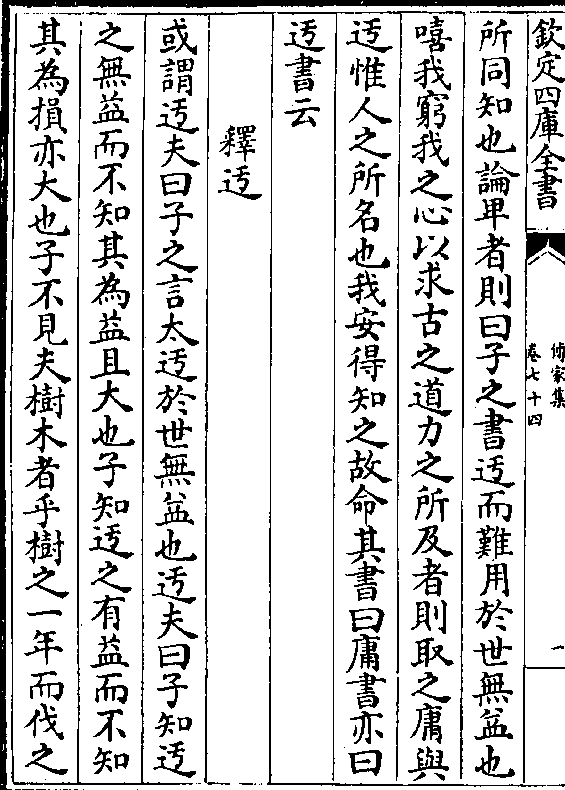 欽定四庫全書
傳家集
卷七十四
一
所同知也論卑者則曰子之書迃而難用於世無益也
嘻我窮我之心以求古之道力之所及者則取之庸與
迃惟人之所名也我安得知之故命其書曰庸書亦曰
迃書云
釋迃
或謂迃夫曰子之言太迃於世無益也迃夫曰子知迃
之無益而不知其為益且大也子知迃之有益而不知
其為損亦大也子不見夫樹木者乎樹之一年而伐之